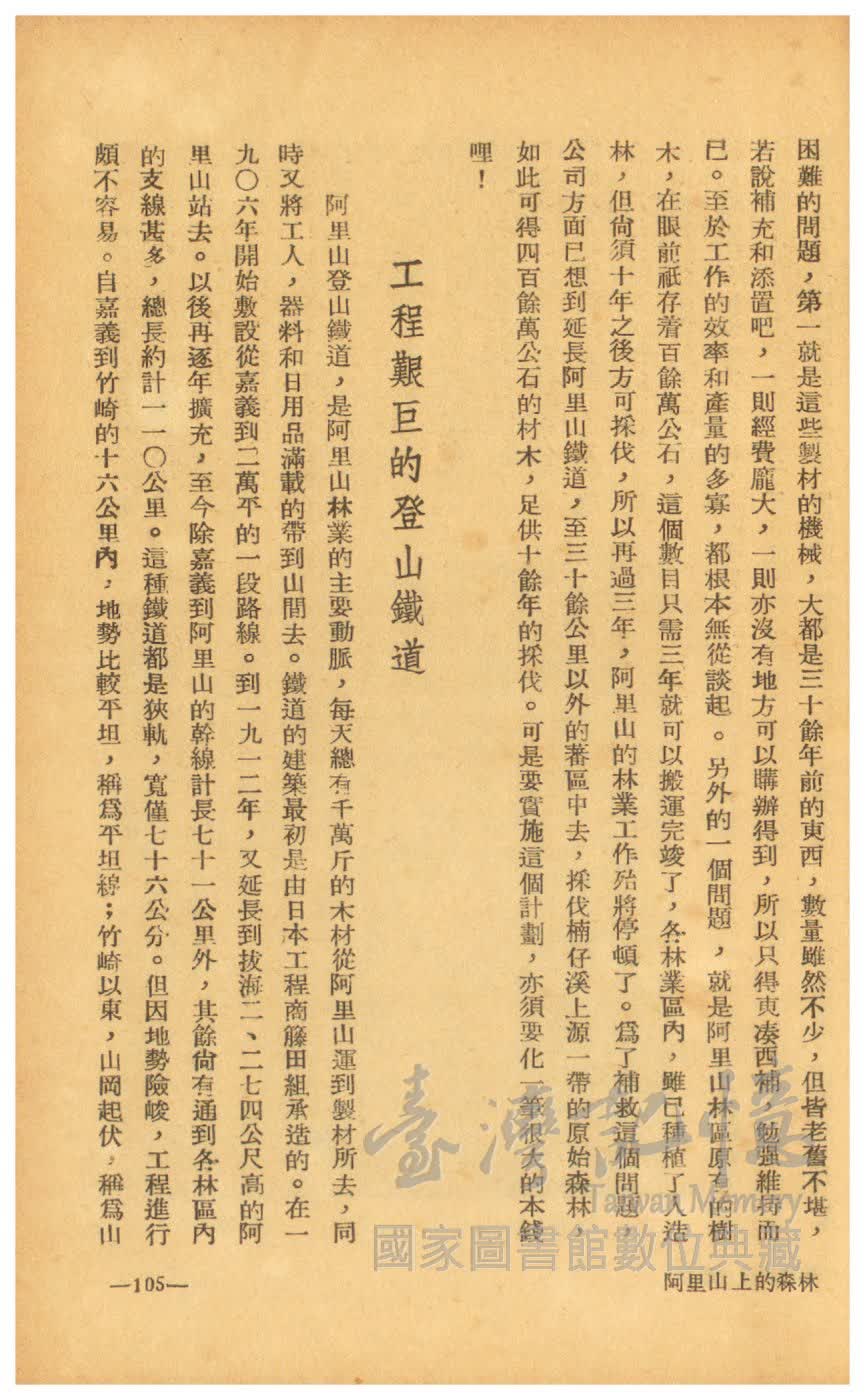 困難的問題，第一就是這些製材的機械，大都是三十餘年前的東西，數量雖然不少，但皆老舊不堪，
若說補充和添置吧，一則經費龐大，一則亦沒有地方可以購辦得到，所以只得東凑西補，勉强維持而
已。至於工作的效率和產量的多寡，都根本無從談起。另外的一個問題，就是阿里山林區原有的樹
木，在眼前祇存着百餘萬公石，這個數目只需三年就可以搬運完竣了，各林業區內，雖已種植了人造
林，但尙須十年之後方可採伐，所以再過三年，阿里山的林業工作殆將停頓了。爲了補救這個問題，
公司方面已想到延長阿里山鐵道，至三十餘公里以外的蕃區中去，採伐楠仔溪上源一帶的原始森林，
如此可得四百餘萬公石的材木，足供十餘年的採伐。可是要實施這個計劃，亦須要化一筆很大的本錢
哩！
工程艱巨的登山鐵道
阿里山登山鐵道，是阿里山林業的主要動脈，每天總有千萬斤的木材從阿里山運到製材所去，同
時又將工人，器料和日用品滿載的帶到山間去。鐵道的建築最初是由日本工程商籐田組承造的。在一
九〇六年開始敷設從嘉義到二萬平的一段路線。到一九一二年，又延長到拔海二、二七四公尺高的阿
里山站去。以後再逐年擴充，至今除嘉義到阿里山的幹線計長七十一公里外，其餘尙有通到各林區內
的支線甚多，總長約計一一〇公里。這種鐵道都是狹軌，寬僅七十六公分。但因地勢險峻，工程進行
頗不容易。自嘉義到竹崎的十六公里內，地勢比較平坦，稱爲平坦線；竹崎以東，山岡起伏，稱爲山
阿里山上的森林
—105—
臺灣記憶
Taiwan Memory
國家圖書館數位典藏